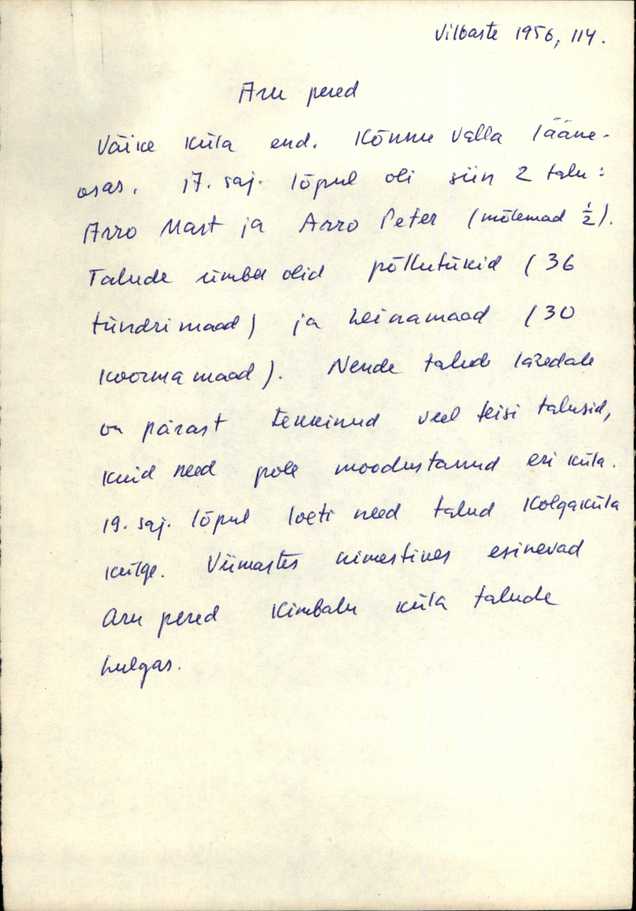 Vilbaste 1956, 114.
Aru pered
Väike küla end. Kõnnu valla lääne-
osas. 17. saj. lõpul oli siin 2 talu:
Arro Mart ja Arro Peter (mõlemad ½).
Talude ümber olid põllutükid (36
tündrimaad) ja heinamaad (30
koorma maad). Nende talude lähedale
on pärast tekkinud veel teisi talusid,
kuid need pole moodustanud eri küla.
19. saj. lõpul loeti need talud Kolgaküla
külge. Viimastes nimestikes esinevad
Aru pered Kimbalu küla talude
hulgas.